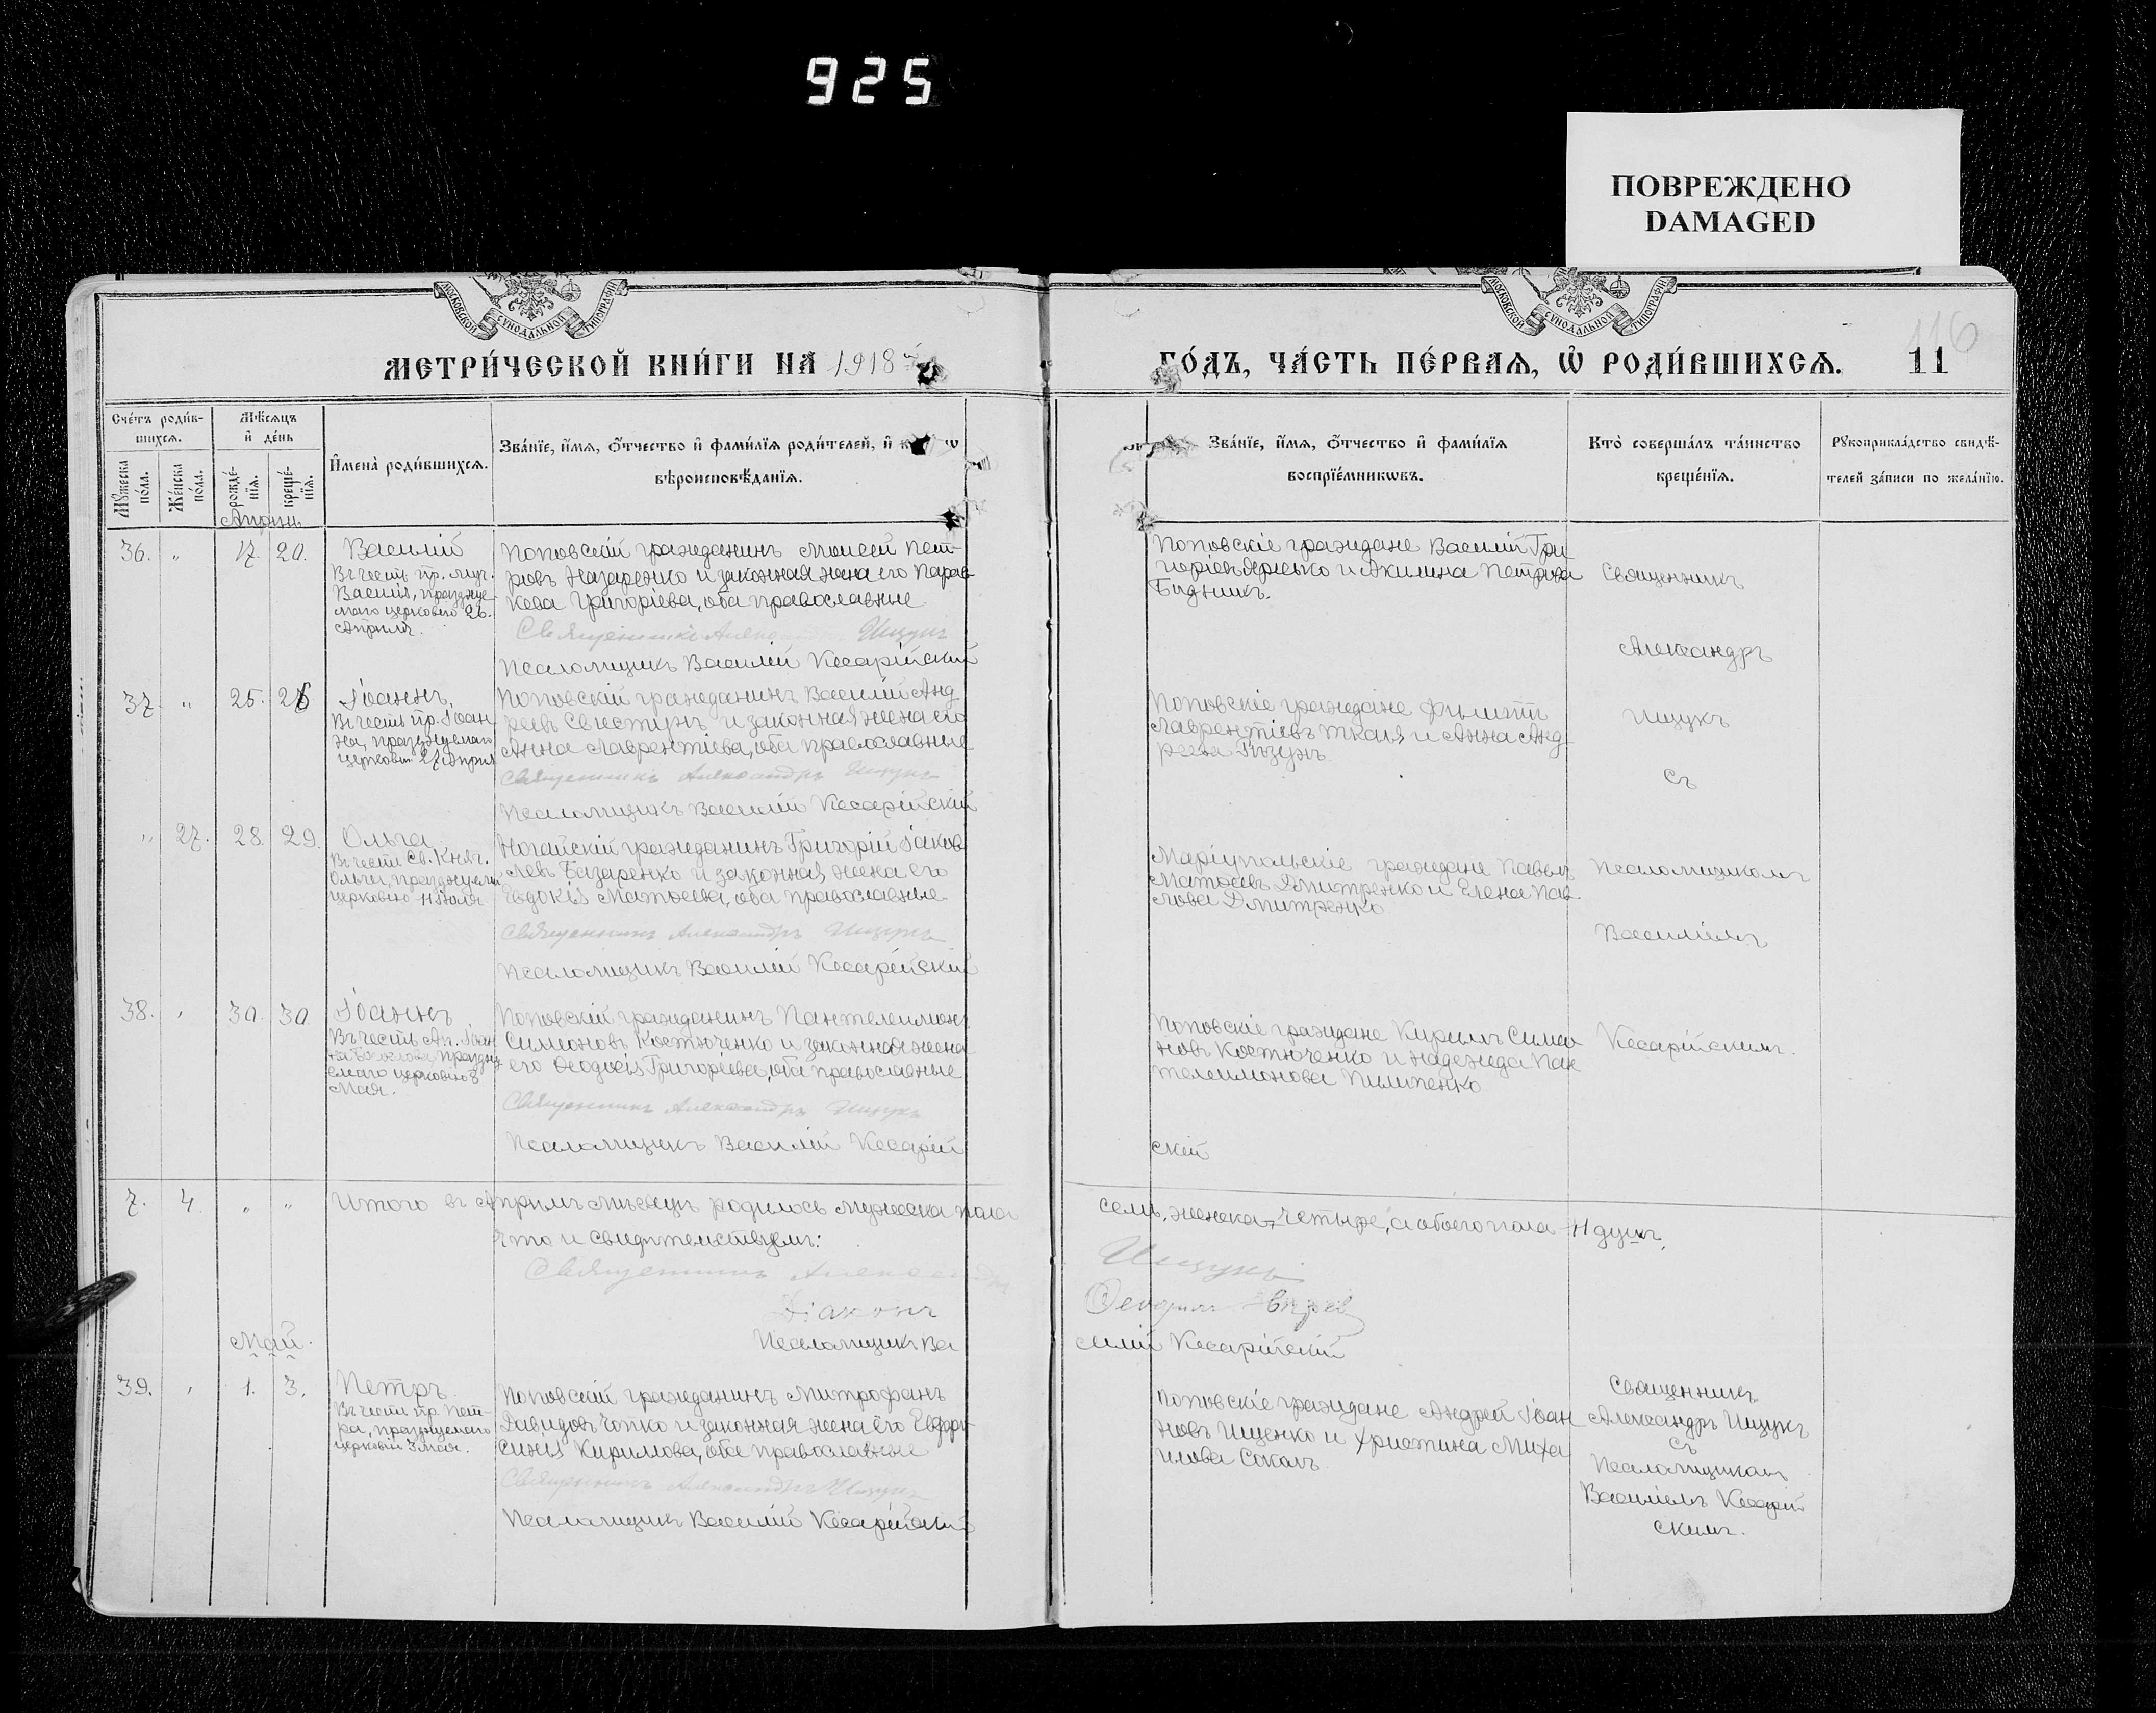 925
ПОВРЕЖДЕНО
DAMAGED
МОСКОВСКОЙ СѴНОДАЛЬНОЙ ТИПОГРАФІИ
МОСКОВСКОЙ СѴНОДАЛЬНОЙ ТИПОГРАФІИ
116
МЕТРИ́ЧЕСКОЙ КНИ́ГИ НА 1918
ГО́ДЪ, ЧА́СТЬ ПЕ́РВАѦ, Ѽ РОДИ́ВШИХСѦ. 11
Сче́тъ роди́в-
шихсѧ.
Мѣ́сѧцъ
и҆ де́нь
Мꙋ́жеска
по́ла.
Же́нска
по́ла.
рожде́-
нїѧ.
креще́-
нїѧ.
И҆мена̀ роди́вшихсѧ.
Зва́нїе, и҆́мѧ, ѻ҆́тчество и҆ фами́лїѧ роди́телей, и҆
вѣроисповѣ́данїѧ.
Зва́нїе, и҆́мѧ, ѻ҆́тчество и҆ фами́лїѧ
воспрїе́мникѡвъ.
Кто̀ соверша́лъ та́инство
креще́нїѧ.
Рꙋкоприкла́дство свидѣ́-
телей за́писи по жела́нїю.
Апрѣль
36. " 17. 20. Василій
Въ честь пр. муч.
Василія, празднуе-
маго церковію 26.
Апрѣля.
Поповскій гражданинъ Моисей Пет-
ровъ Назаренко и законная жена его Парас-
кева Григоріева, оба православные
Священникъ Александръ Ищукъ
Псаломщикъ Василій Кесарійскій
Поповскіе граждане Василій Гри
горіевъ и Акилина Петрова
Бидникъ.
Священникъ
Александръ
Ищукъ
съ
Псаломщикомъ
Василіемъ
Кесарійскимъ.
37 " 25. 26 Іоаннъ,
Въ честь пр. Іоан
на, празднуемаго
церковію 27 Апрѣл
Поповскій гражданинъ Василій Анд
реевъ Свистунъ и законная жена его
Анна Лаврентіева, оба православные
Священникъ Александръ Ищукъ
Псаломщикъ Василій Кесарійскій
Поповскіе граждане Филиппъ
Лаврентіевъ Ткачъ и Анна Анд
реева
" 27. 28. 29. Ольга
Въ честь Св. Княг.
Ольги, празднуемой
церковію 11 Іюля
Ногайскій гражданинъ Григорій Іаков
левъ Базаренко и законная жена его
Евдокія Матѳеева, оба православные
Священникъ Александръ Ищукъ
Псаломщикъ Василій Кесарійскій
Маріупольскіе граждане Павелъ
Матѳеевъ Дмитренко и Елена Пав
лова Дмитренко
38. " 30. 30 Іоаннъ
Въ честь Ап. Іоан
на Богослова, праздну
емаго церковію 8
Мая.
Поповскій гражданинъ Пантелеимонъ
Симоновъ Костюченко и законная жена
его Ѳеодосія Григоріева, оба православные
Священникъ Александръ Ищукъ
Псаломщикъ Василій Кесарій
скій
Поповскіе граждане Кириллъ Симо
новъ Костюченко и Надежда Пан
телеимонова Пилипенко
7. 4. " " Итого въ Апрѣлѣ мѣсяцѣ родилось мужеска пола
семь, женска четыре, а обоего пола 11 душъ,
Что и свидѣтельствуемъ:
Священникъ Александръ
Ищукъ
Діаконъ
Псаломщикъ Ва
силій Кесарійскій
Май.
39. " 1. 3. Петръ
Въ честь пр. Пет-
ра, празднуемаго
церковію 3 мая.
Поповскій гражданинъ Митрофанъ
Давидовъ Чопко и законная жена его Евфро
синія Кириллова, оба православные
Священникъ Александръ Ищукъ
Псаломщикъ Василій Кесарійскій
Поповскіе граждане Андрей Іоан
новъ Ищенко и Христина Миха
илова Соколъ
Священникъ
Александръ Ищукъ
съ
Псаломщикомъ
Василіемъ Кесарій
скимъ.